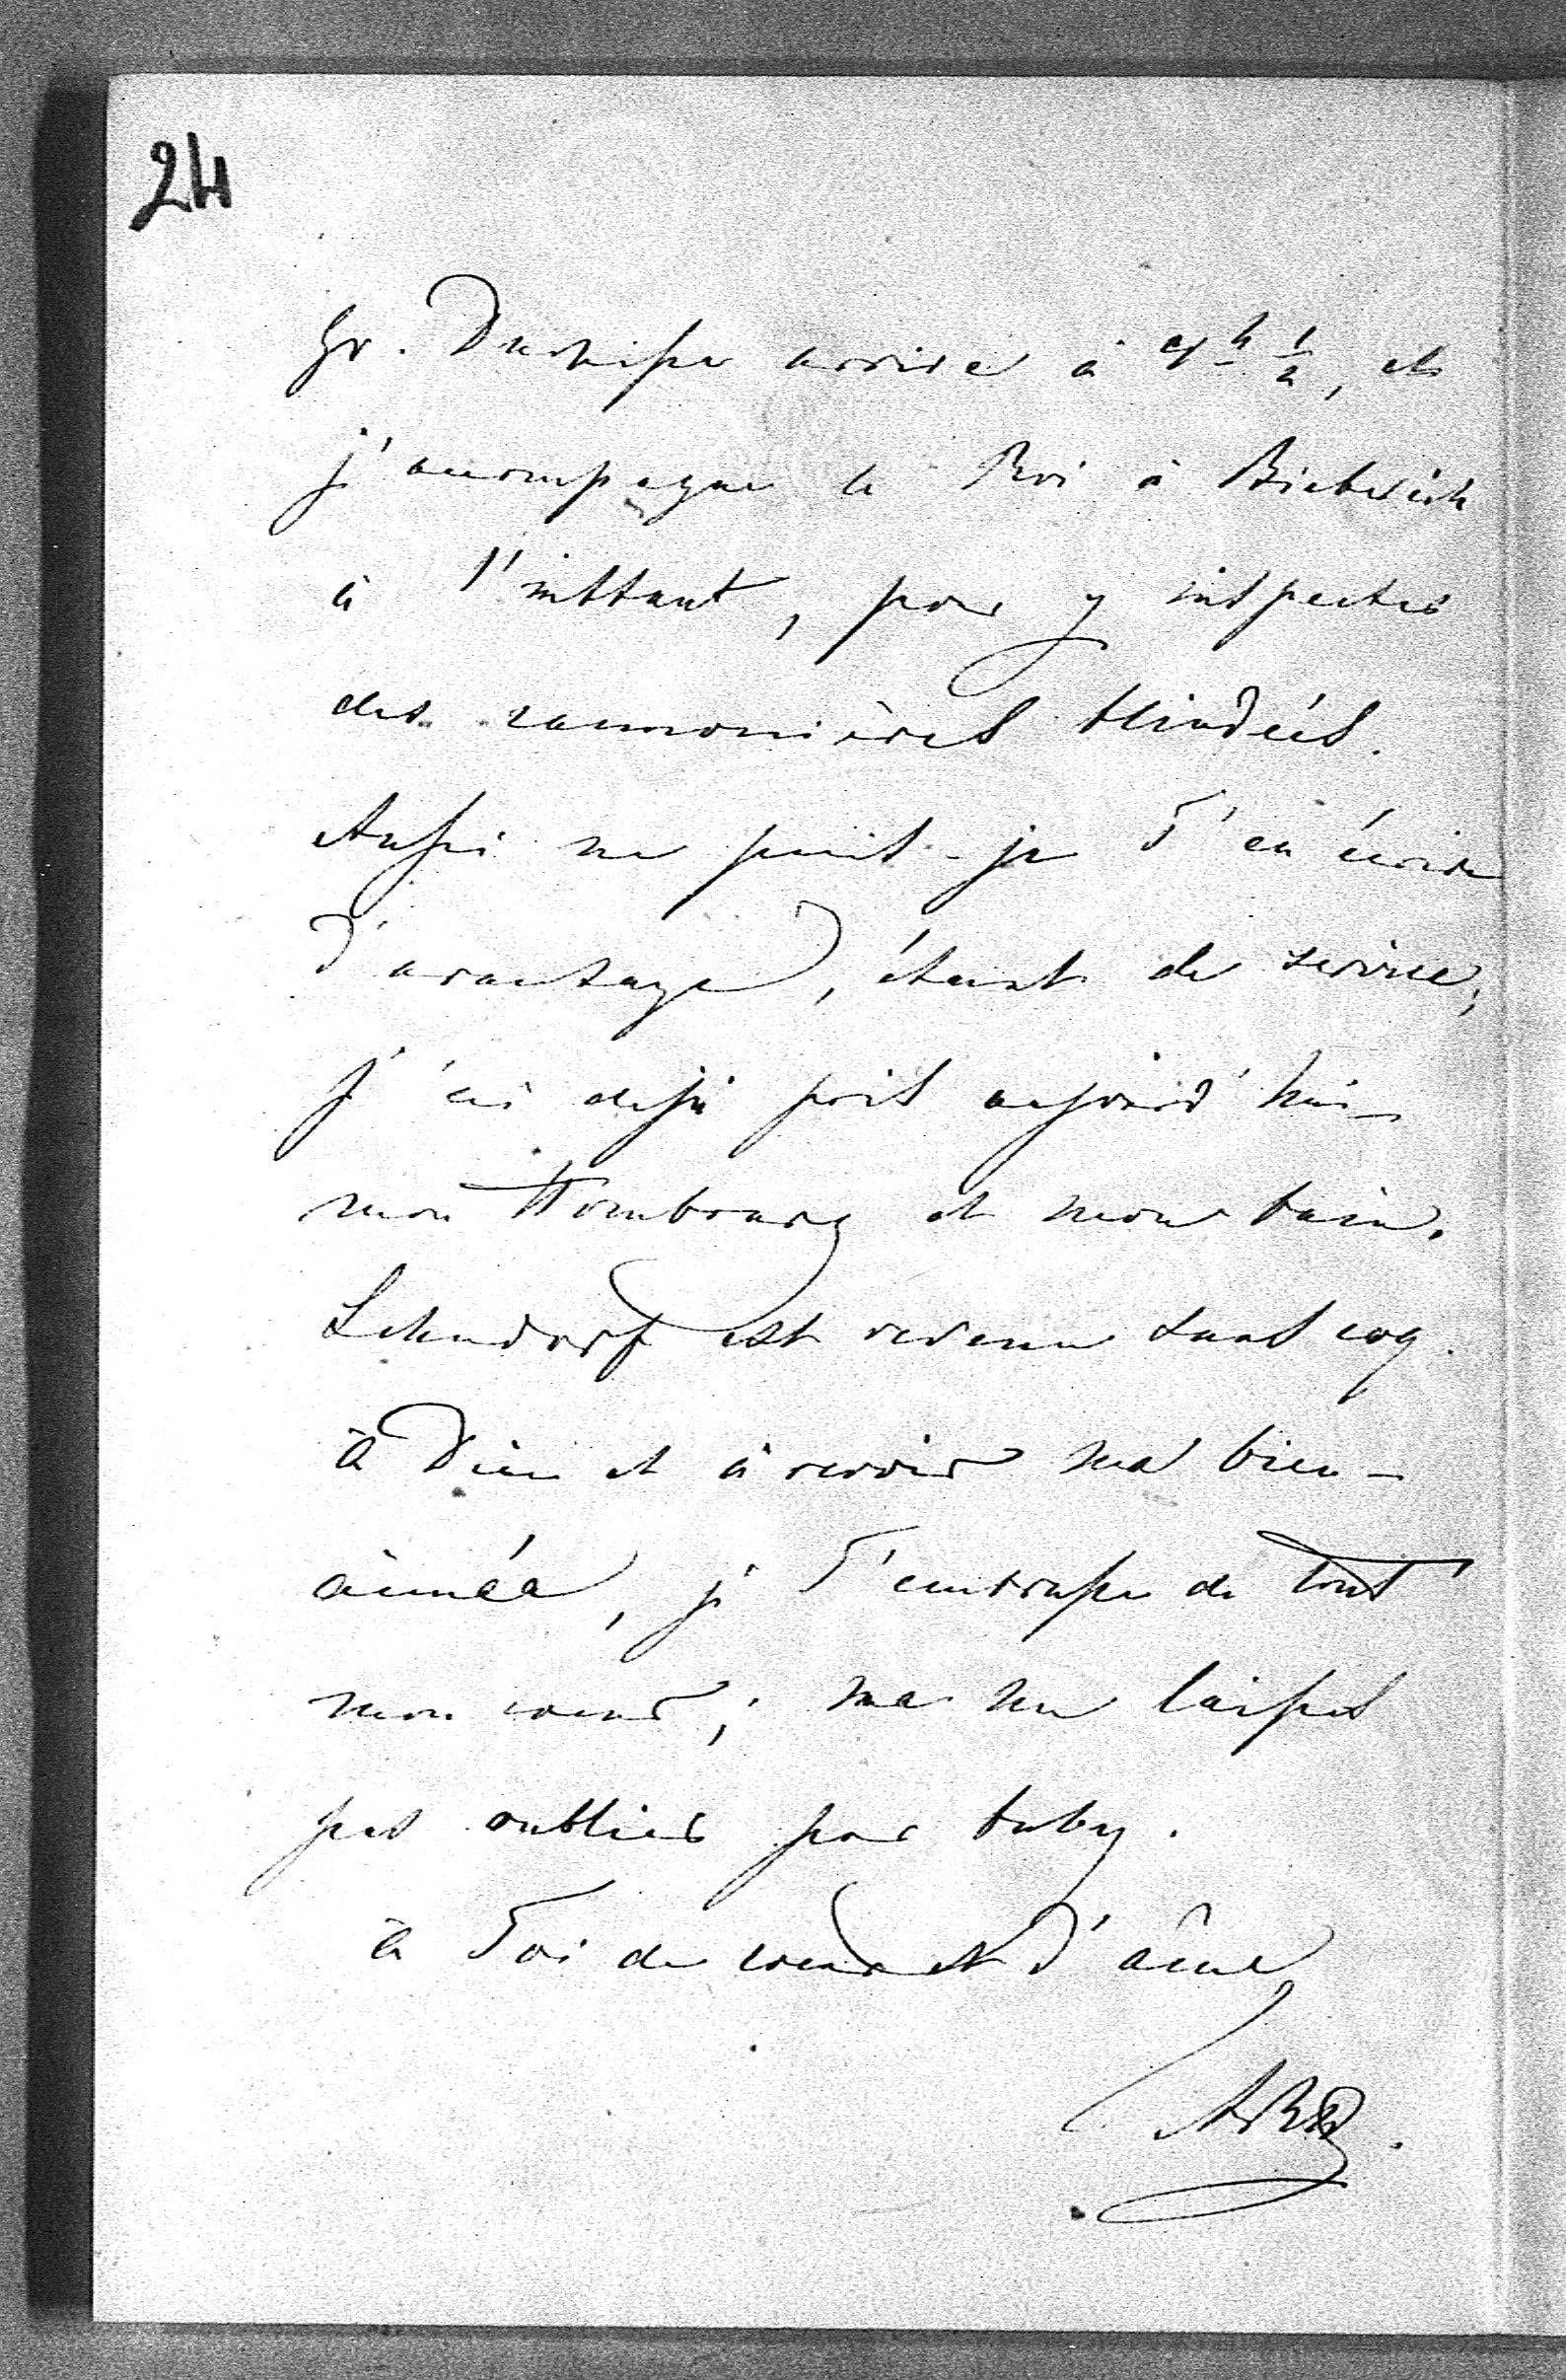 24
Gr. Duchesse arrive à 4 h ½, et
j'accompagne le Roi à Bieberich
à l'instant, pour y inspecter
des cannonières blindées.
Aussi ne puis-je T'en écrire
d'avantage, étant de service;
j'ai dejà pris aujourd'hui
mon Hombourg et mon bain.
Lehndorf est revenu sans coq.
à Dieu et à revoir ma bien-
aimée, je T'embrasse de tout
mon coeur; me ne laisses
pas oublier par baby.
à Toi de coeur et d'âme